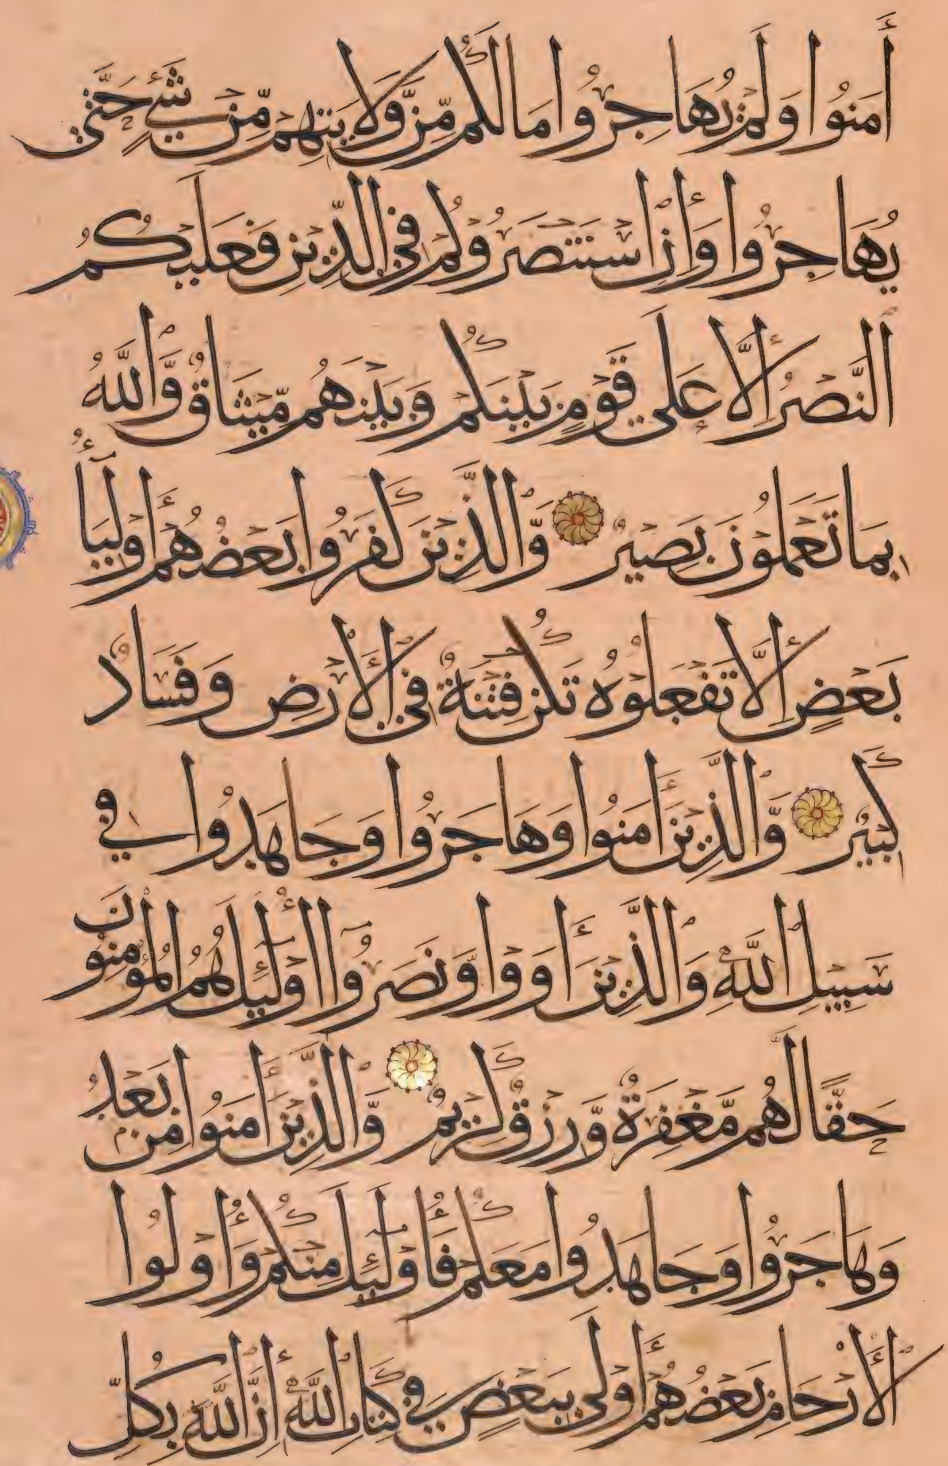 أَمَنُوا وَلَمْ يُهَاجِرُوا مَا لَكُم مِّن وَّلَايَتِهِم مِّن شَيْءٍ حَتَّى
يُهَاجِرُوا وَإِنِ اسْتَنْصَرُوكُمْ فِي الدِّينِ فَعَلَيْكُمُ
النَّصْرُ إِلَّا عَلَى قَوْمٍ بَيْنَكُمْ وَبَيْنَهُم مِّيثَاقٌ وَّاللَّهُ
بِمَا تَعْمَلُونَ بَصِيرٌ وَّالَّذِينَ كَفَرُوا بَعْضُهُمْ أَوْلِيَاءُ
بَعْضٍ إِلَّا تَفْعَلُوهُ تَكُن فِتْنَةٌ فِي الْأَرْضِ وَفَسَادٌ
كَبِيرٌ وَّالَّذِينَ أَمَنُوا وَهَاجَرُوا وَجَاهَدُوا فِي
سَبِيلِ اللَّهِ وَالَّذِينَ أَوَوا وَّنَصَرُوا أُولَئِكَ هُمُ الْمُؤْمِنُونَ
حَقًّا لَّهُم مَّغْفِرَةٌ وَّرِزْقٌ كَرِيمٌ وَّالَّذِينَ أَمَنُوا مِن بَعْدُ
وَهَاجَرُوا وَجَاهَدُوا مَعَكُمْ فَأُولَئِكَ مِنكُمْ وَأُولُوا
الْأَرْحَامِ بَعْضُهُمْ أَوْلَى بِبَعْضٍ فِي كِتَابِ اللَّهِ إِنَّ اللَّهَ بِكُلِّ